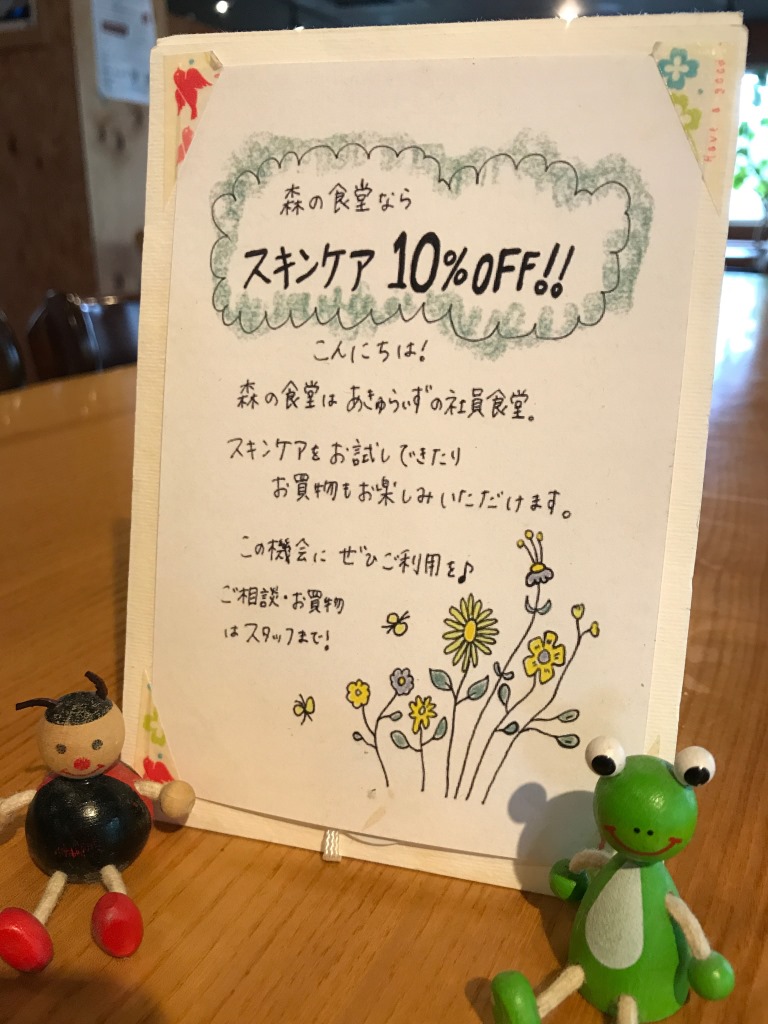 森の食堂なら
スキンケア 10%OFF!!
こんにちは!
森の食堂は あきゅらいずの社員食堂。
スキンケアを お試しできたり
お買物も お楽しみいただけます。
この機会に ぜひご利用を♪
ご相談・お買物
はスタッフまで!
Have a good